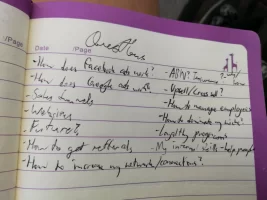 /Page
Date /Page
Questions
- How does Facebook ads work?
- How does Google ads work?
- Sales funnels
- Webinars
- Future?
- How to get referrals
- How to increase my network/connections?
- ABN? Insurance
- Upsell/cross sell?
- How to manage employees
- How to dominate my niche?
- Loyalty programs
- My internal skills - help people